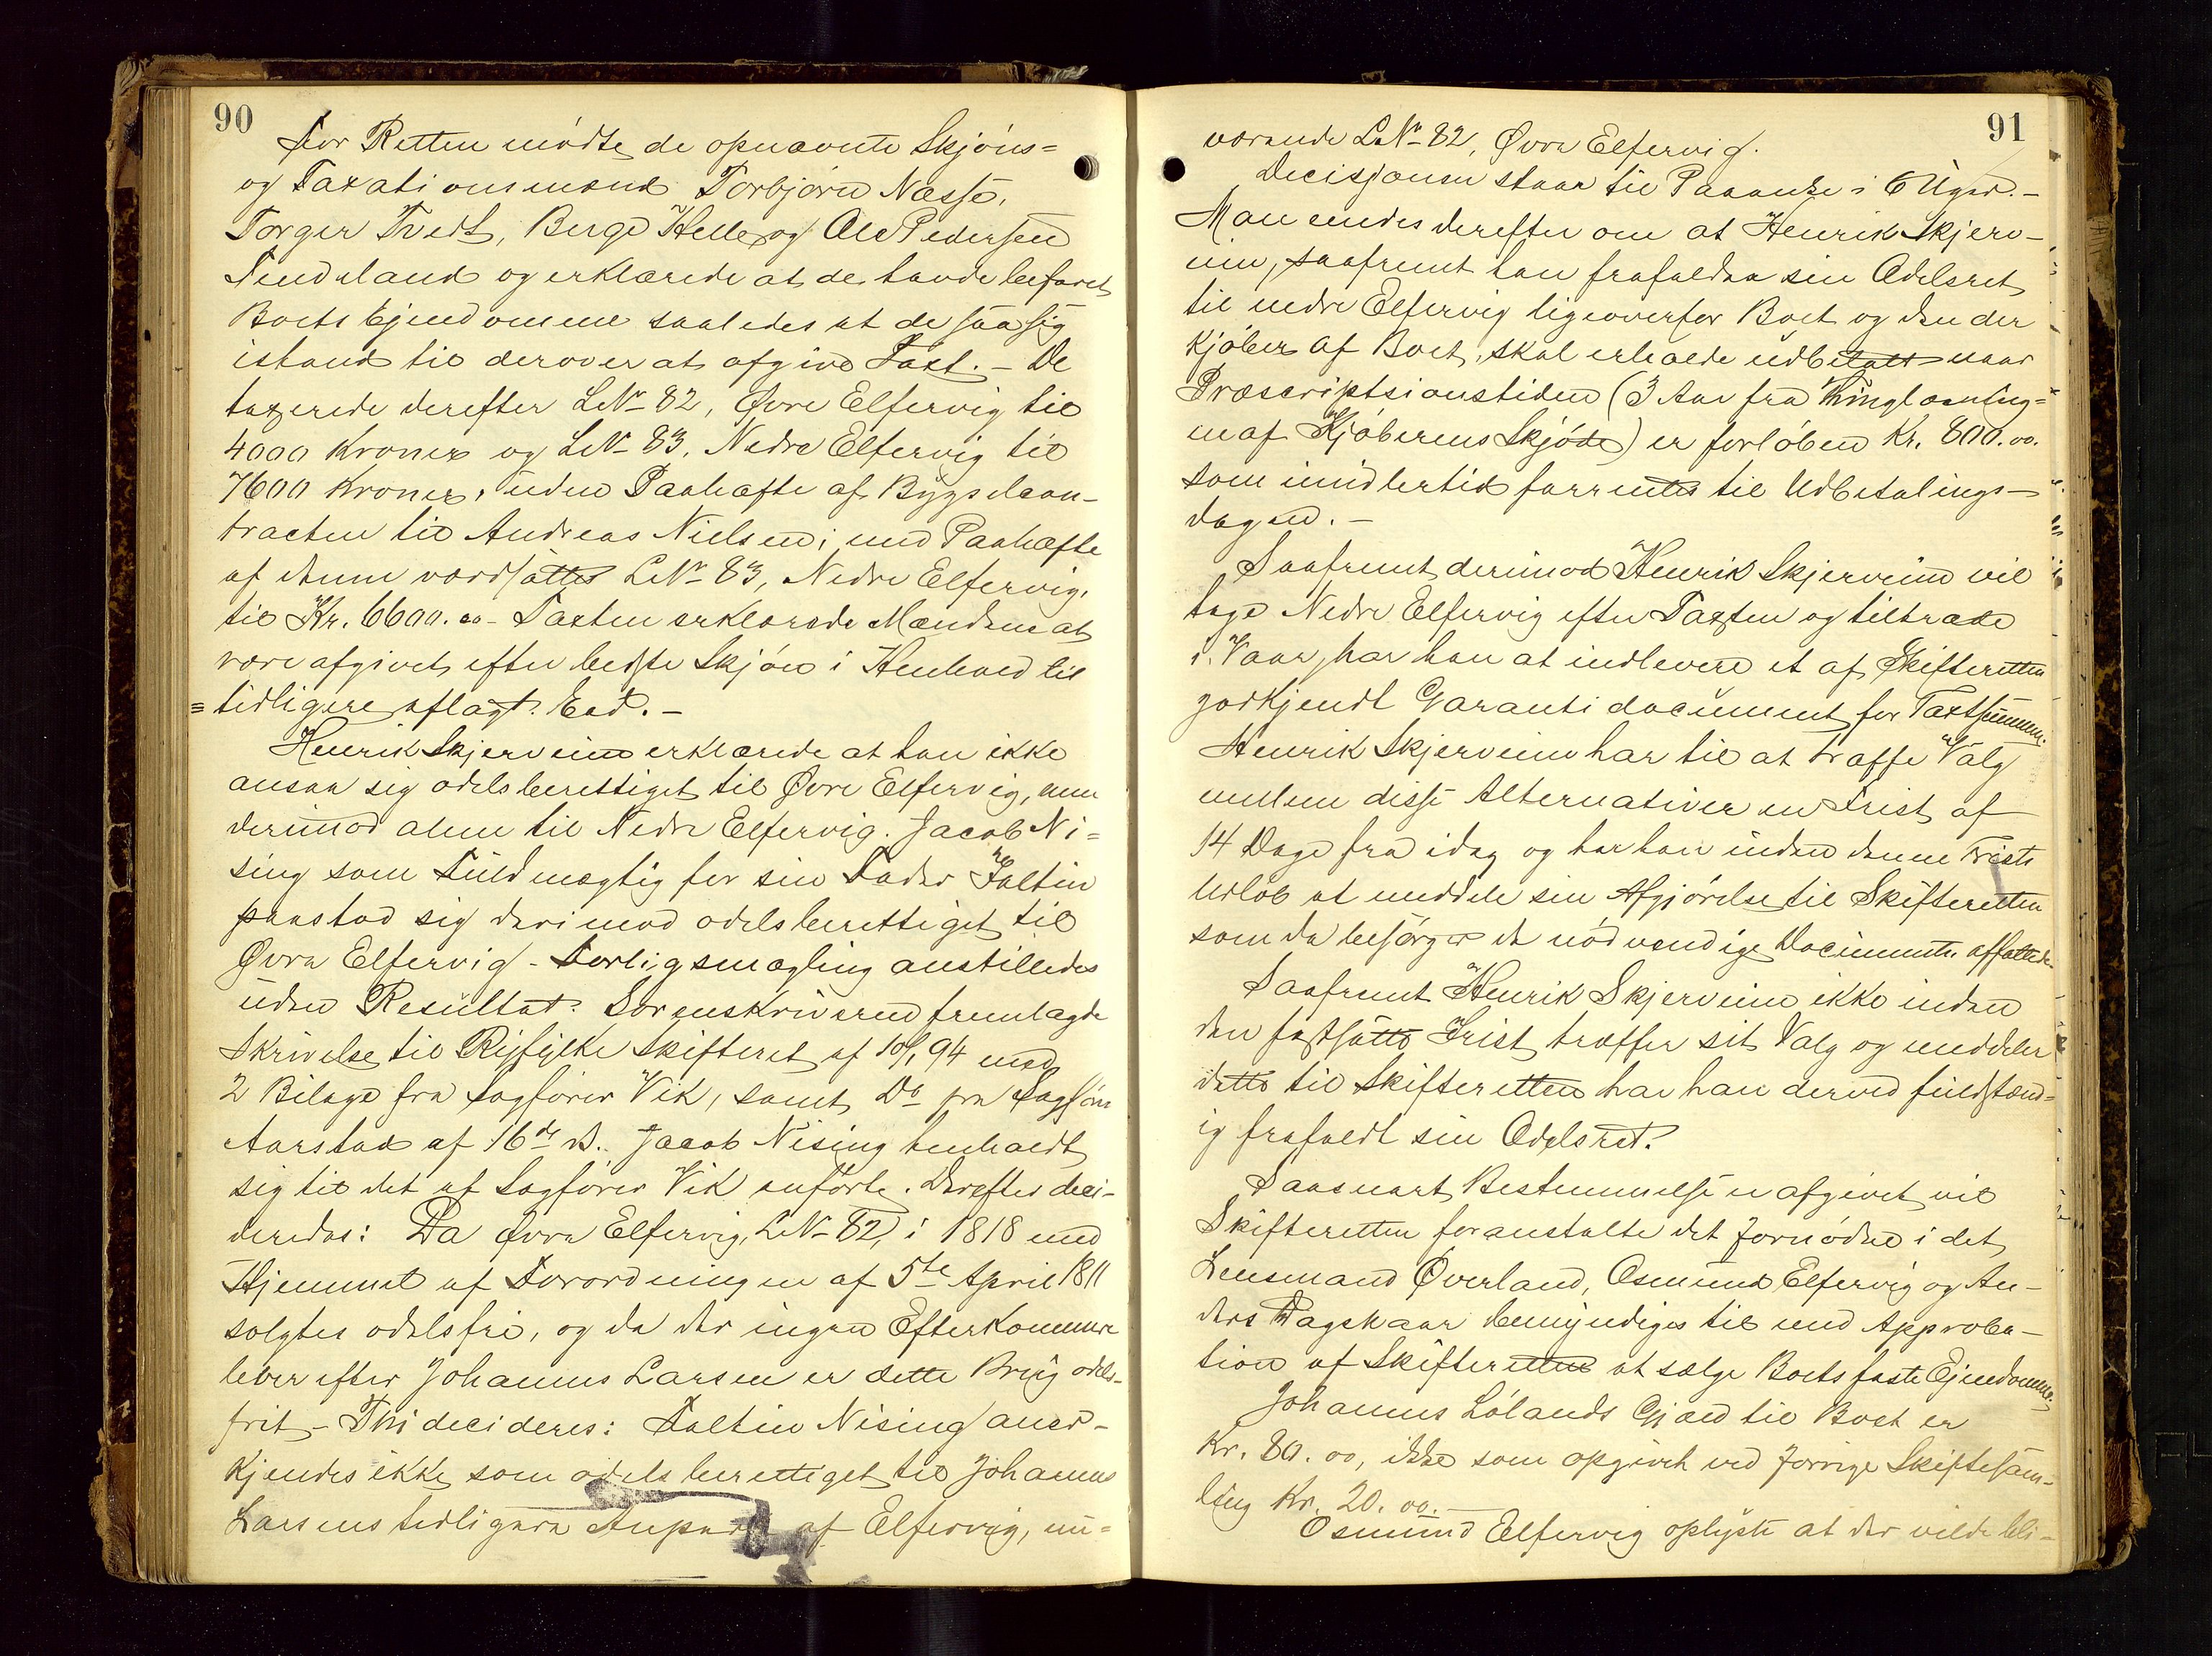 90
For Retten mødte de opnævnte Skjöns=
og Taxationsmænd Torbjörn Næssö,
Torger Tvedt, Berge Helle og Ole Pedersen
Tendeland og erklærede at de havde befaret
Boets Ejendomme saaledes at de saa sig
istand til derover at afgive Taxt. – De
taxerede derefter LNr 82, Øvre Elfervig til
4000 Kroner og LNr 83, Nedre Elfervig til
7600 Kroner, uden Paahæfte af Bygselcon-
tracten til Andreas Nielsen; med Paahæfte
af denne værdsattes LNr 83, Nedre Elfervig,
til Kr. 6600.00 – Taxten erklærede Mændene at
være afgivet efter bedste Skjön i Henhold til
tidligere aflagt Eed. –
Henrik Skjerveim erklærede at han ikke
ansaa sig odelsberettiget til Øvre Elfervig, men
derimod alene til Nedre Elfervig. Jacob Ni=
sing som Fuldmægtig for sin Fader Faltin
paastod sig derimod odelsberettiget til
Øvre Elfervig – Forligsmægling anstilledes
uden Resultat. Sorenskriveren fremlagde
Skrivelse til Ryfylke Skifteret af 10/1 94 med
2 Bilage fra Sagfører Vik, samt Do fra Sagförer
Aarstad af 16de ds. Jacob Nising henholdt
sig til det af Sagfører Vik anförte. Derefter deci-
deredes: Da Øvre Elfervig, LNr 82, i 1818 med
Hjemmel af Forordningen af 5te April 1811
solgtes odelsfri, og da der ingen Efterkommere
lever efter Johannes Larsen er dette Brug odels-
frit – Thi decideres: Faltin Nising aner-
kjendes ikke som odelsberettiget til Johannes
Larsens tidligere Anpart af Elfervig, nu=
91
værende LNr 82, Øvre Elfervig.
Decisjonen staar til Paaanke i 6 Uger. –
Man enedes derefter om at Henrik Skjerv-
eim, saafremt han frafalder sin Odelsret
til nedre Elfervig ligeoverfor Boet og den der
Kjøber af Boet, skal erholde udbetalt naar
Præscriptsionstiden (3 Aar fra Thinglæsning=
en af Kjöberens Skjöde) er forlöben Kr. 800.00.
som imidlertid forrentes til Udbetalings-
dagen. –
Saafremt derimod Henrik Skjerveim vil
tage Nedre Elfervig efter Taxten og tiltræde
i Vaar, har han at indlevere et af Skifteretten
godkjendt Garantidocument for Taxtsummen.
Henrik Skjerveim har til at træffe Valg
mellem disse Alternativer en Frist af
14 Dage fra idag og har han inden denne Frists
Udløb at meddele sin Afgjörelse til Skifteretten
som da besörger de nödvendige Documenter affattede.
Saafremt Henrik Skjerveim ikke inden
den fastsatte Frist træffer sit Valg og meddeler
dette til Skifteretten har han derved fuldstænd-
ig frafaldt sin Odelsret.
Saasnart Bestemmelse er afgivet vil
Skifteretten foranstalte det fornødne i det
Lensmand Överland, Osmund Elfervig og An-
ders Dagskaar bemyndiges til med Approba-
tion af Skifteretten at sælge Boets faste Ejendomme.
Johannes Lölands Gjæld til Boet er
Kr. 80.00, ikke som opgivet ved forrige Skiftesam-
ling Kr. 20.00. –
Osmund Elfervig oplyste at der vilde bli-